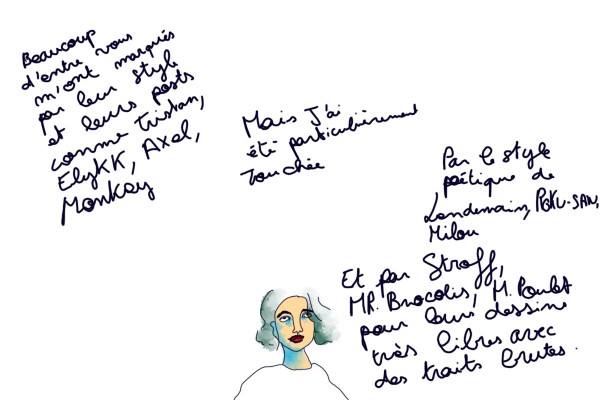 Beaucoup
d'entre vous
m'ont marqués
par leur style
et leurs posts
comme Tristan,
ElyKK, Axel,
Monkey
Mais J'ai
été particulièrement
Touchée
Par le style
poétique de
Londemain, POKU-SAN,
Milou
Et par Stroff,
MR. Brocolis, M. Poulet
pour leurs dessins
très libres avec
des traits brutes.